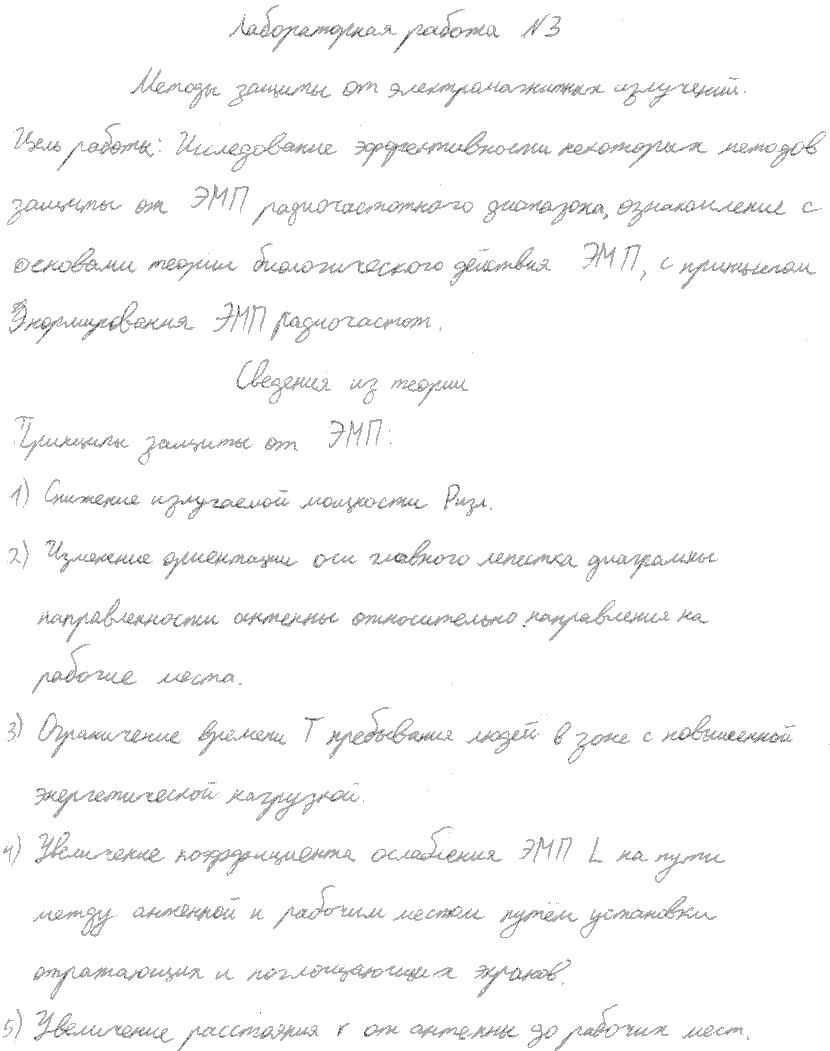 Лабораторная работа N3
Методы защиты от электромагнитных излучений.
Цель работы: Исследование эффективности некоторых методов
защиты от ЭМП радиочастотного диапазона, ознакомление с
основами теории биологического действия ЭМП, с принципом
нормирования ЭМП радиочастот.
Сведения из теории
Принципы защиты от ЭМП:
1) Снижение излучаемой мощности Pизл.
2) Изменение ориентации оси главного лепестка диаграммы
направленности антенны относительно направления на
рабочие места.
3) Ограничение времени T пребывания людей в зоне с повышенной
энергетической нагрузкой.
4) Увеличение коэффициента ослабления ЭМП L на пути
между антенной и рабочим местом путём установки
отражающих и поглощающих экранов.
5) Увеличение расстояния r от антенны до рабочих мест.